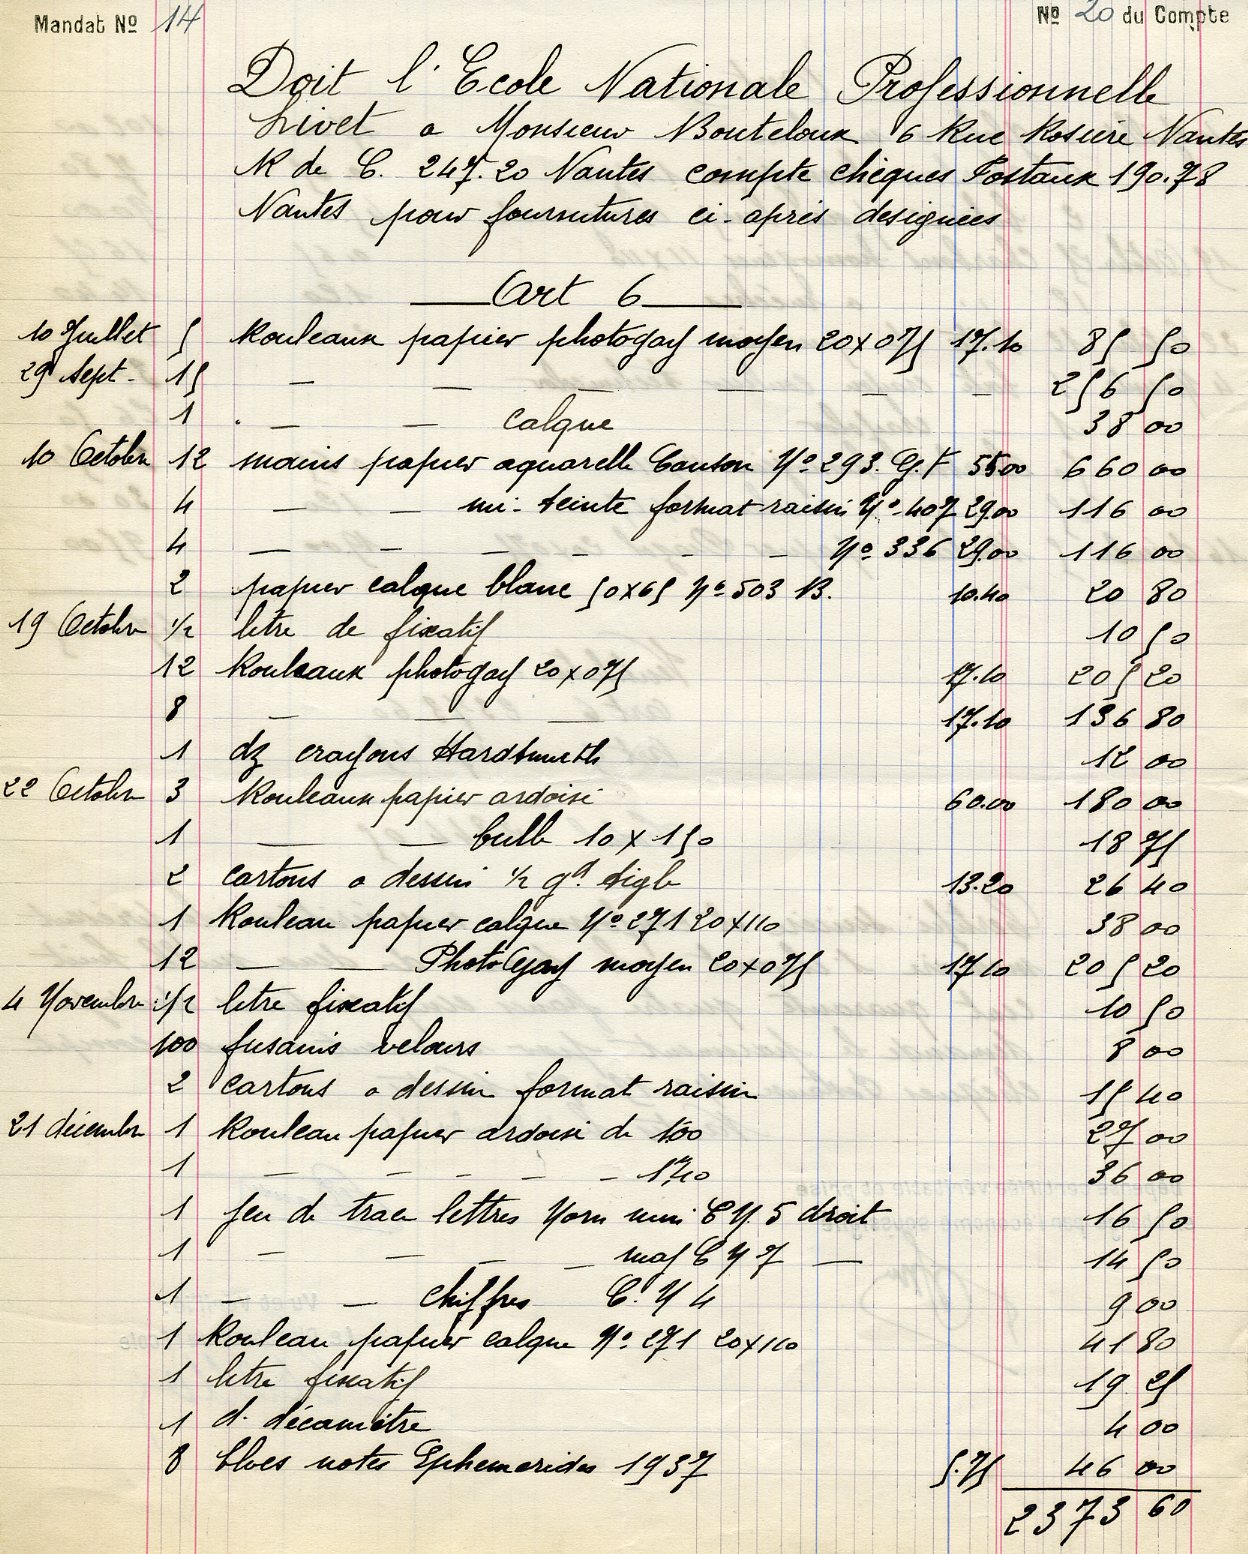 Mandat Nº 14
Nº 20 du Compte
Doit l'Ecole Nationale Professionnelle
Livet a Monsieur Bouteloux 6 Rue Rosière Nantes
R de C. 247.20 Nantes compte chèques Postaux 190.78
Nantes pour fournitures ci-après designées
Art 6
10 Juillet 5 Rouleaux papier photogay moyen 20x075 17.10 85 50
29 Sept. 15 — — — — — — 256 50
1 — — calque 38 00
10 Octobre 12 mains papier aquarelle Canson Nº 293. G.F 55 00 660 00
4 — — mi-teinte format raisin Nº 407 29 00 116 00
4 — — — — — — Nº 336 29.00 116 00
2 papier calque blanc 50x65 Nº 503 B. 10.40 20 80
19 Octobre 1/2 litre de fixatif 10 50
12 Rouleaux photogay 20x075 17.10 205 20
8 — — — 17.10 136 80
1 dz crayons Hardtmuth 12 00
22 Octobre 3 Rouleaux papier ardoisé 60.00 180 00
1 — — bulle 10 x 150 18 75
2 cartons a dessin 1/2 gd. aigle 13.20 26 40
1 Rouleau papier calque Nº 271 20x110 38 00
12 — — PhotoGay moyen 20x075 17 10 205 20
4 Novembre 1/2 litre fixatif 10 50
100 fusains velours 8 00
2 cartons a dessin format raisin 15 40
21 décembre 1 Rouleau papier ardoisé de 100 27 00
1 — — — — — 36 00
1 jeu de trace lettres Norm mini C N. 5 droit 16 50
1 — — — maj C N 7 — 14 50
1 — — chiffres C. N 4 9 00
1 Rouleau papier calque Nº 271 20x110 41 80
1 litre fixatif 19 25
1 d. décamètre 4 00
8 blocs notes Ephemerides 1937 5.75 46 00
2373 60